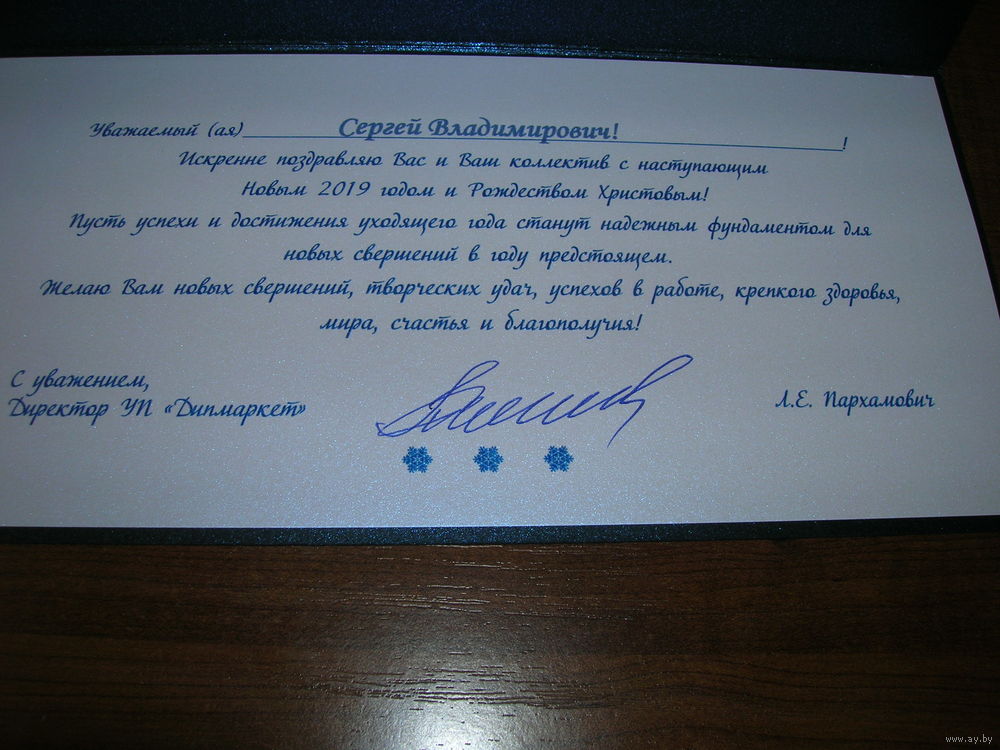 Уважаемый (ая) Сергей Владимирович! !
Искренне поздравляю Вас и Ваш коллектив с наступающим
Новым 2019 годом и Рождеством Христовым!
Пусть успехи и достижения уходящего года станут надежным фундаментом для
новых свершений в году предстоящем.
Желаю Вам новых свершений, творческих удач, успехов в работе, крепкого здоровья,
мира, счастья и благополучия!
С уважением,
Директор УП «Дипмаркет»
Л.Е. Пархамович
www.ay.by